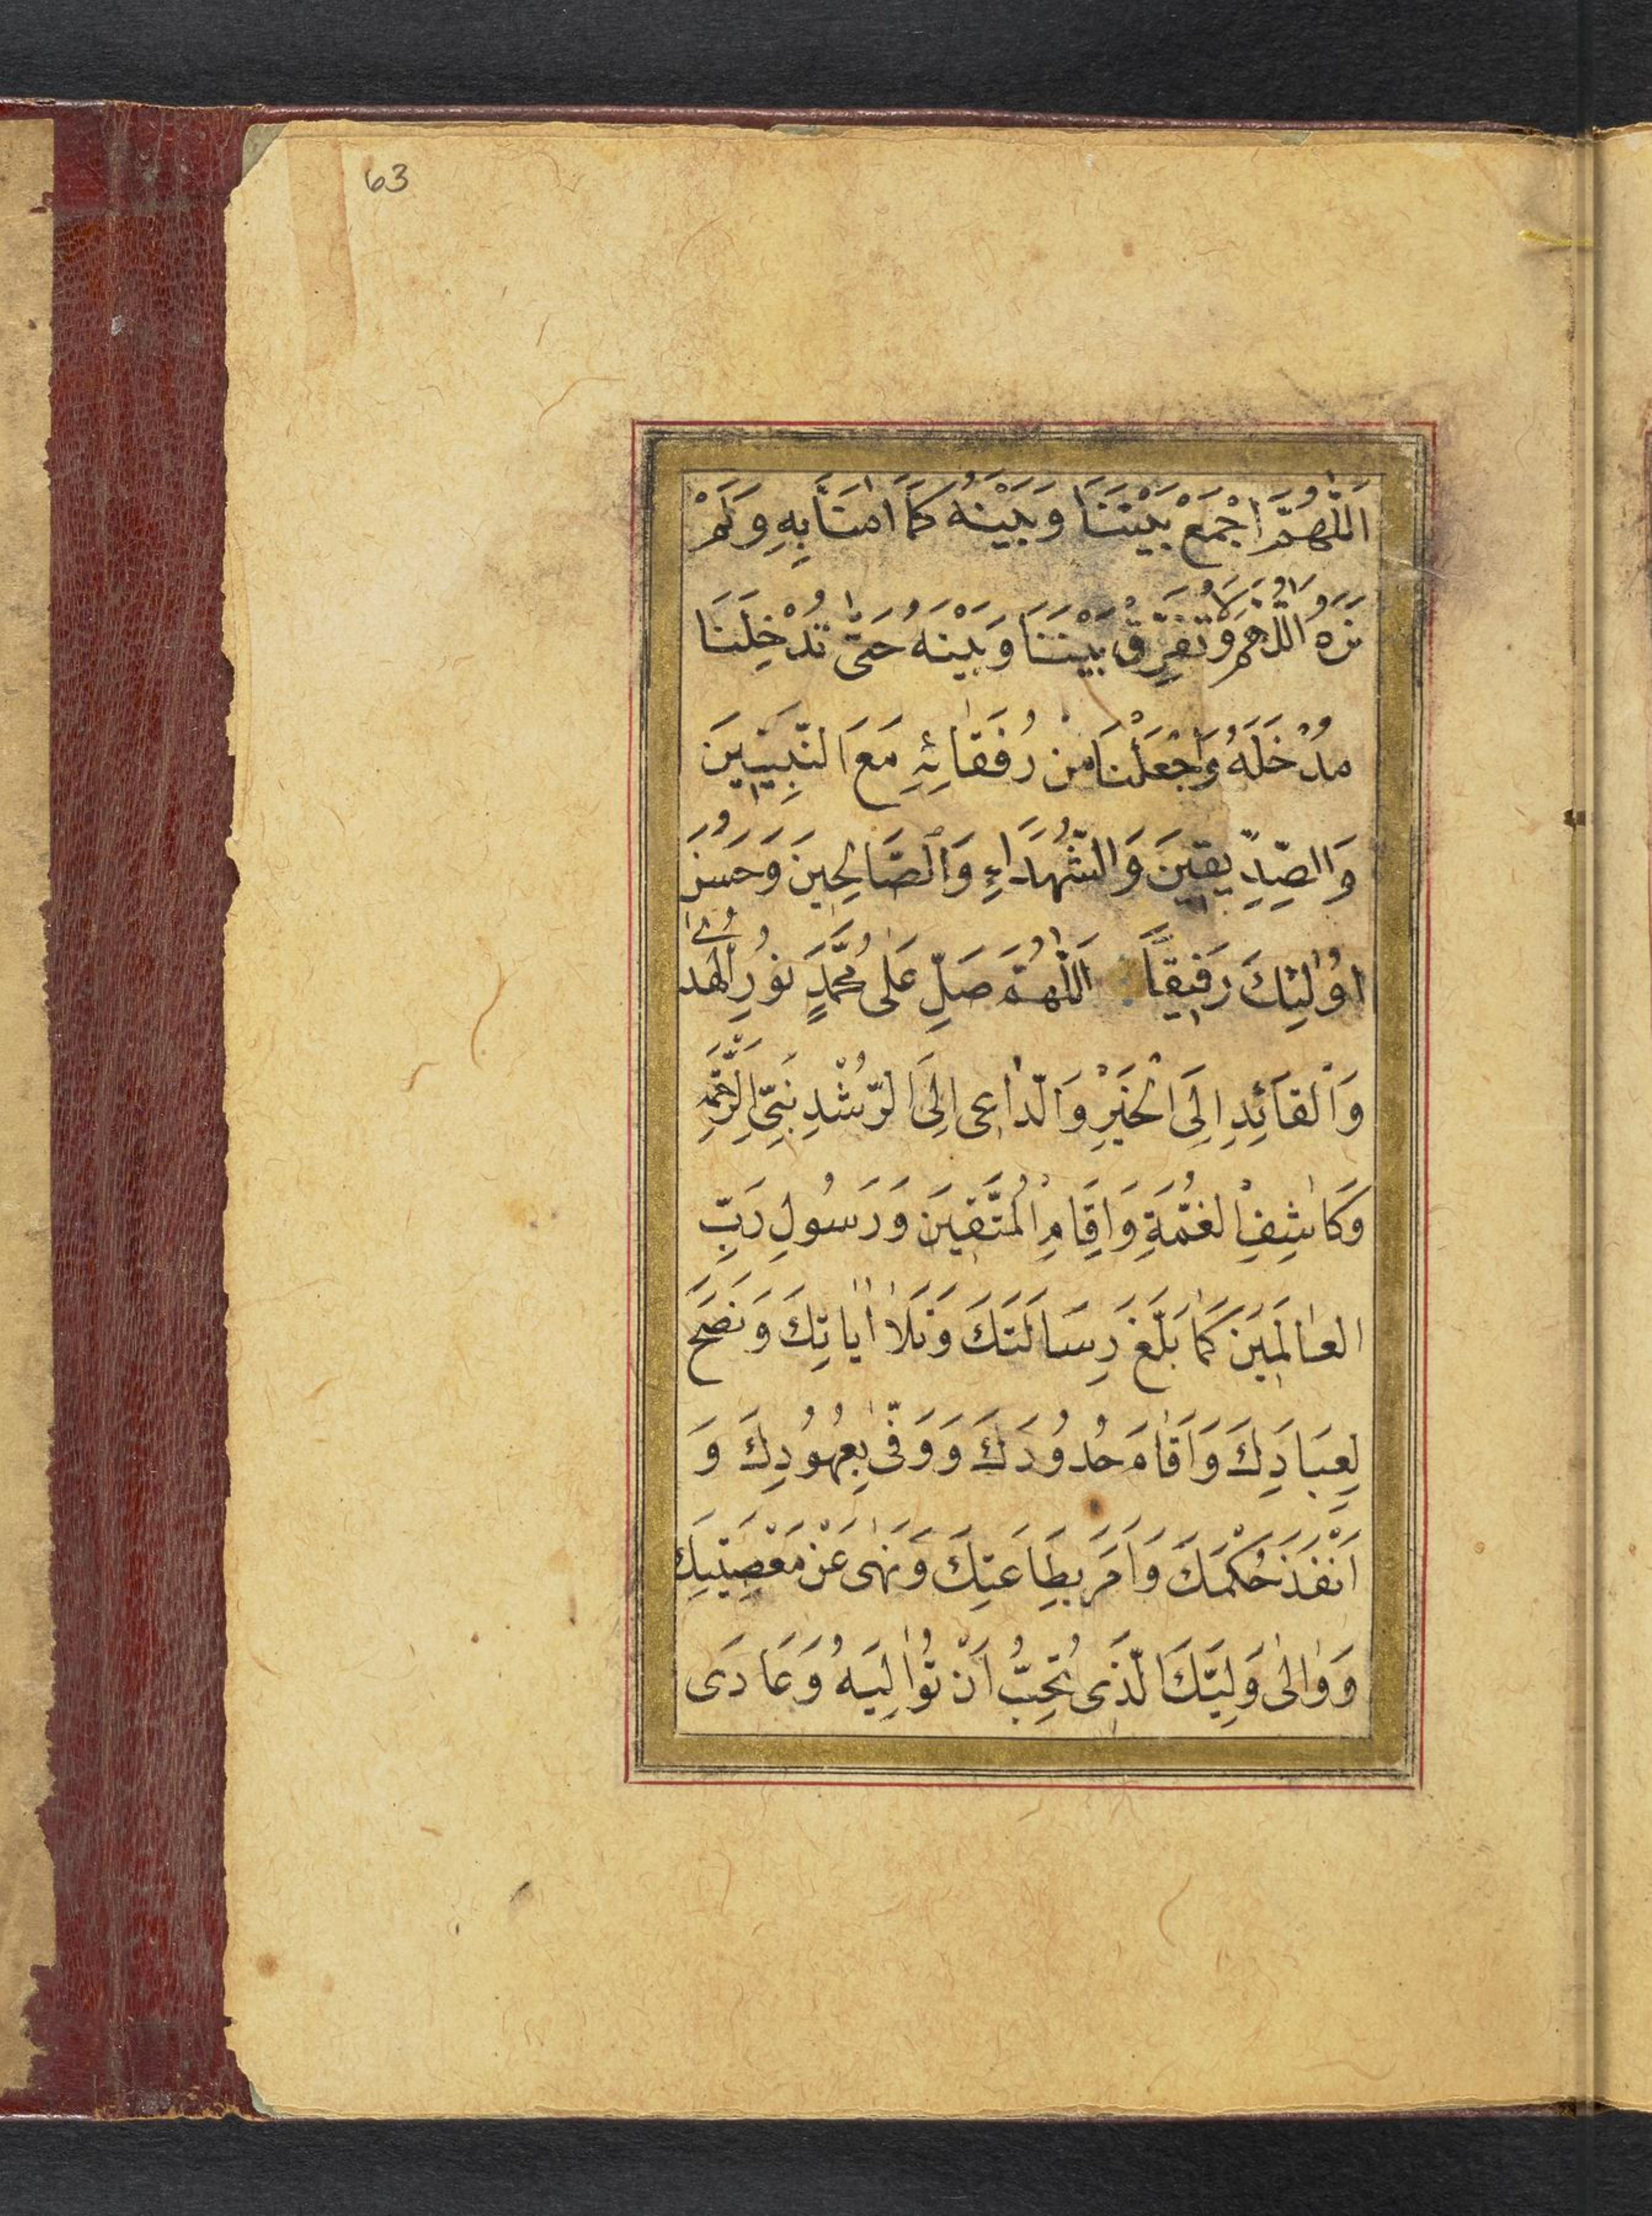 63
اَللّٰهُمَّ اجْمَعْ بَيْنَنَا وَبَيْنَهُ كَمَا اٰمَنَّا بِهِ وَلَمْ
نَرَهُ اللّٰهُمَّ وَلَا تُفَرِّقْ بَيْنَنَا وَبَيْنَهُ حَتّٰى تُدْخِلَنَا
مُدْخَلَهُ وَاجْعَلْنَا مِنْ رُفَقَائِهِ مَعَ النَّبِيّٖينَ
وَالصِّدِّيقٖينَ وَالشُّهَدَاءِ وَالصَّالِحٖينَ وَحَسُنَ
اُولٰئِكَ رَفٖيقًا اَللّٰهُمَّ صَلِّ عَلٰى مُحَمَّدٍ نُورِ الْهُدٰى
وَالْقَائِدِ اِلَى الْخَيْرِ وَالدّٰاعٖى اِلَى الرُّشْدِ نَبِىِّ الرَّحْمَةِ
وَكَاشِفِ الْغُمَّةِ وَاِقَامِ الْمُتَّقٖينَ وَرَسُولِ رَبِّ
الْعٰالَمٖينَ كَمَا بَلَّغَ رِسَالَتَكَ وَتَلَا اٰيَاتِكَ وَنَصَحَ
لِعِبَادِكَ وَاَقَامَ حُدُودَكَ وَوَفّٰى بِعُهُودِكَ وَ
اَنْفَذَ حُكْمَكَ وَاَمَرَ بِطَاعَتِكَ وَنَهٰى عَنْ مَعْصِيَتِكَ
وَوٰالٰى وَلِيَّكَ الَّذٖى تُحِبُّ اَنْ تُوٰالِيَهُ وَعَادَى